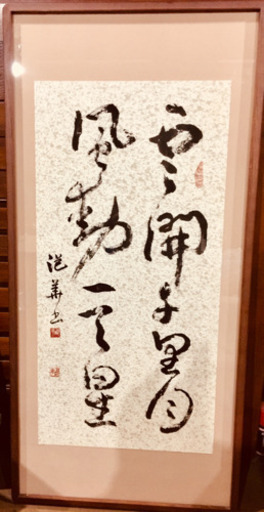 雲開千里月
風動一天星
華書